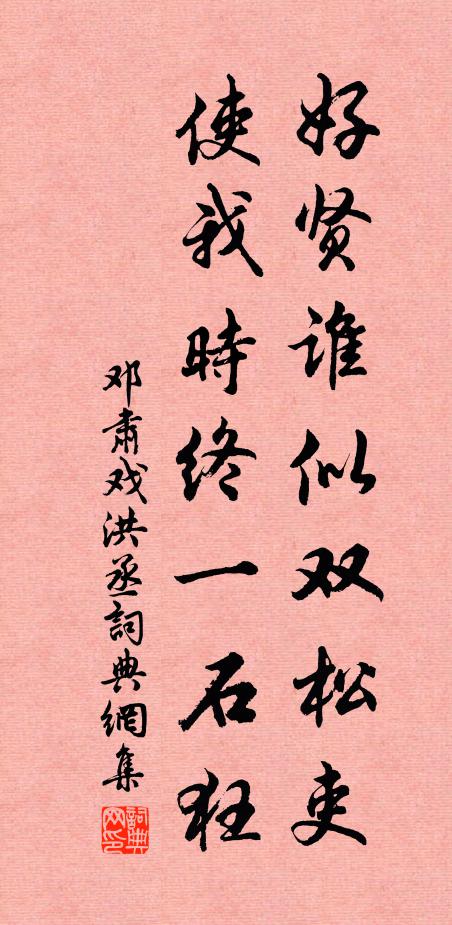 好贤谁似双松吏
使我時终一石狂
邓肃戏洪丞詞典網集
詞典网印